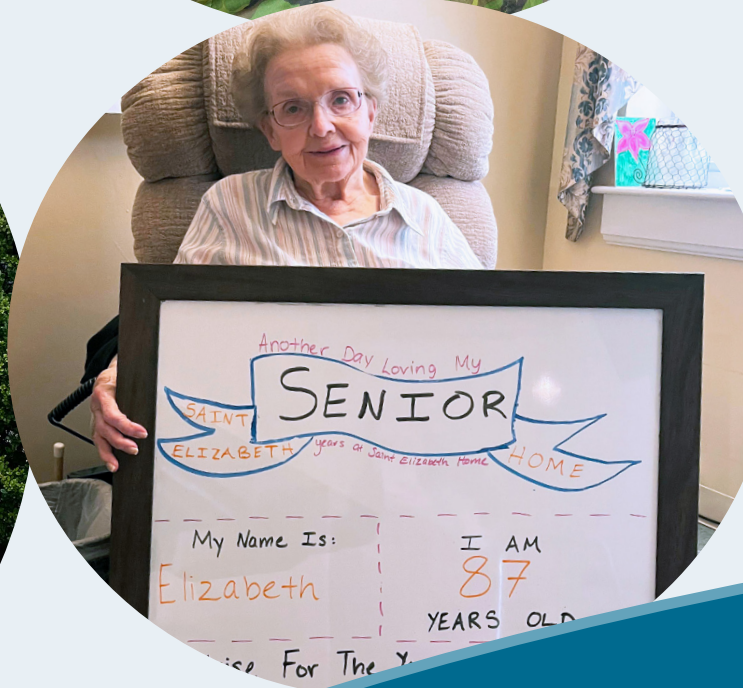 Another Day Loving My
SENIOR
SAINT
ELIZABETH
years at Saint Elizabeth Home
HOME
My Name Is:
Elizabeth
I AM
87
YEARS OLD
For The